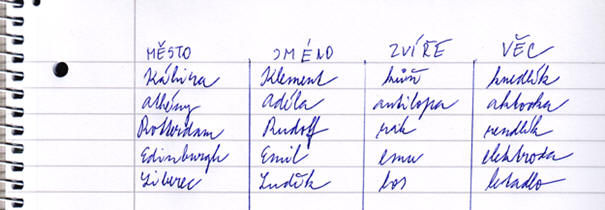 MĚSTO JMÉNO ZVÍŘE VĚC
Káhira Klement kůň knedlík
Athény Adéla antilopa aktovka
Rotterdam Rudolf rak rendlík
Edinburgh Emil emu elektroda
Liberec Luděk los letadlo